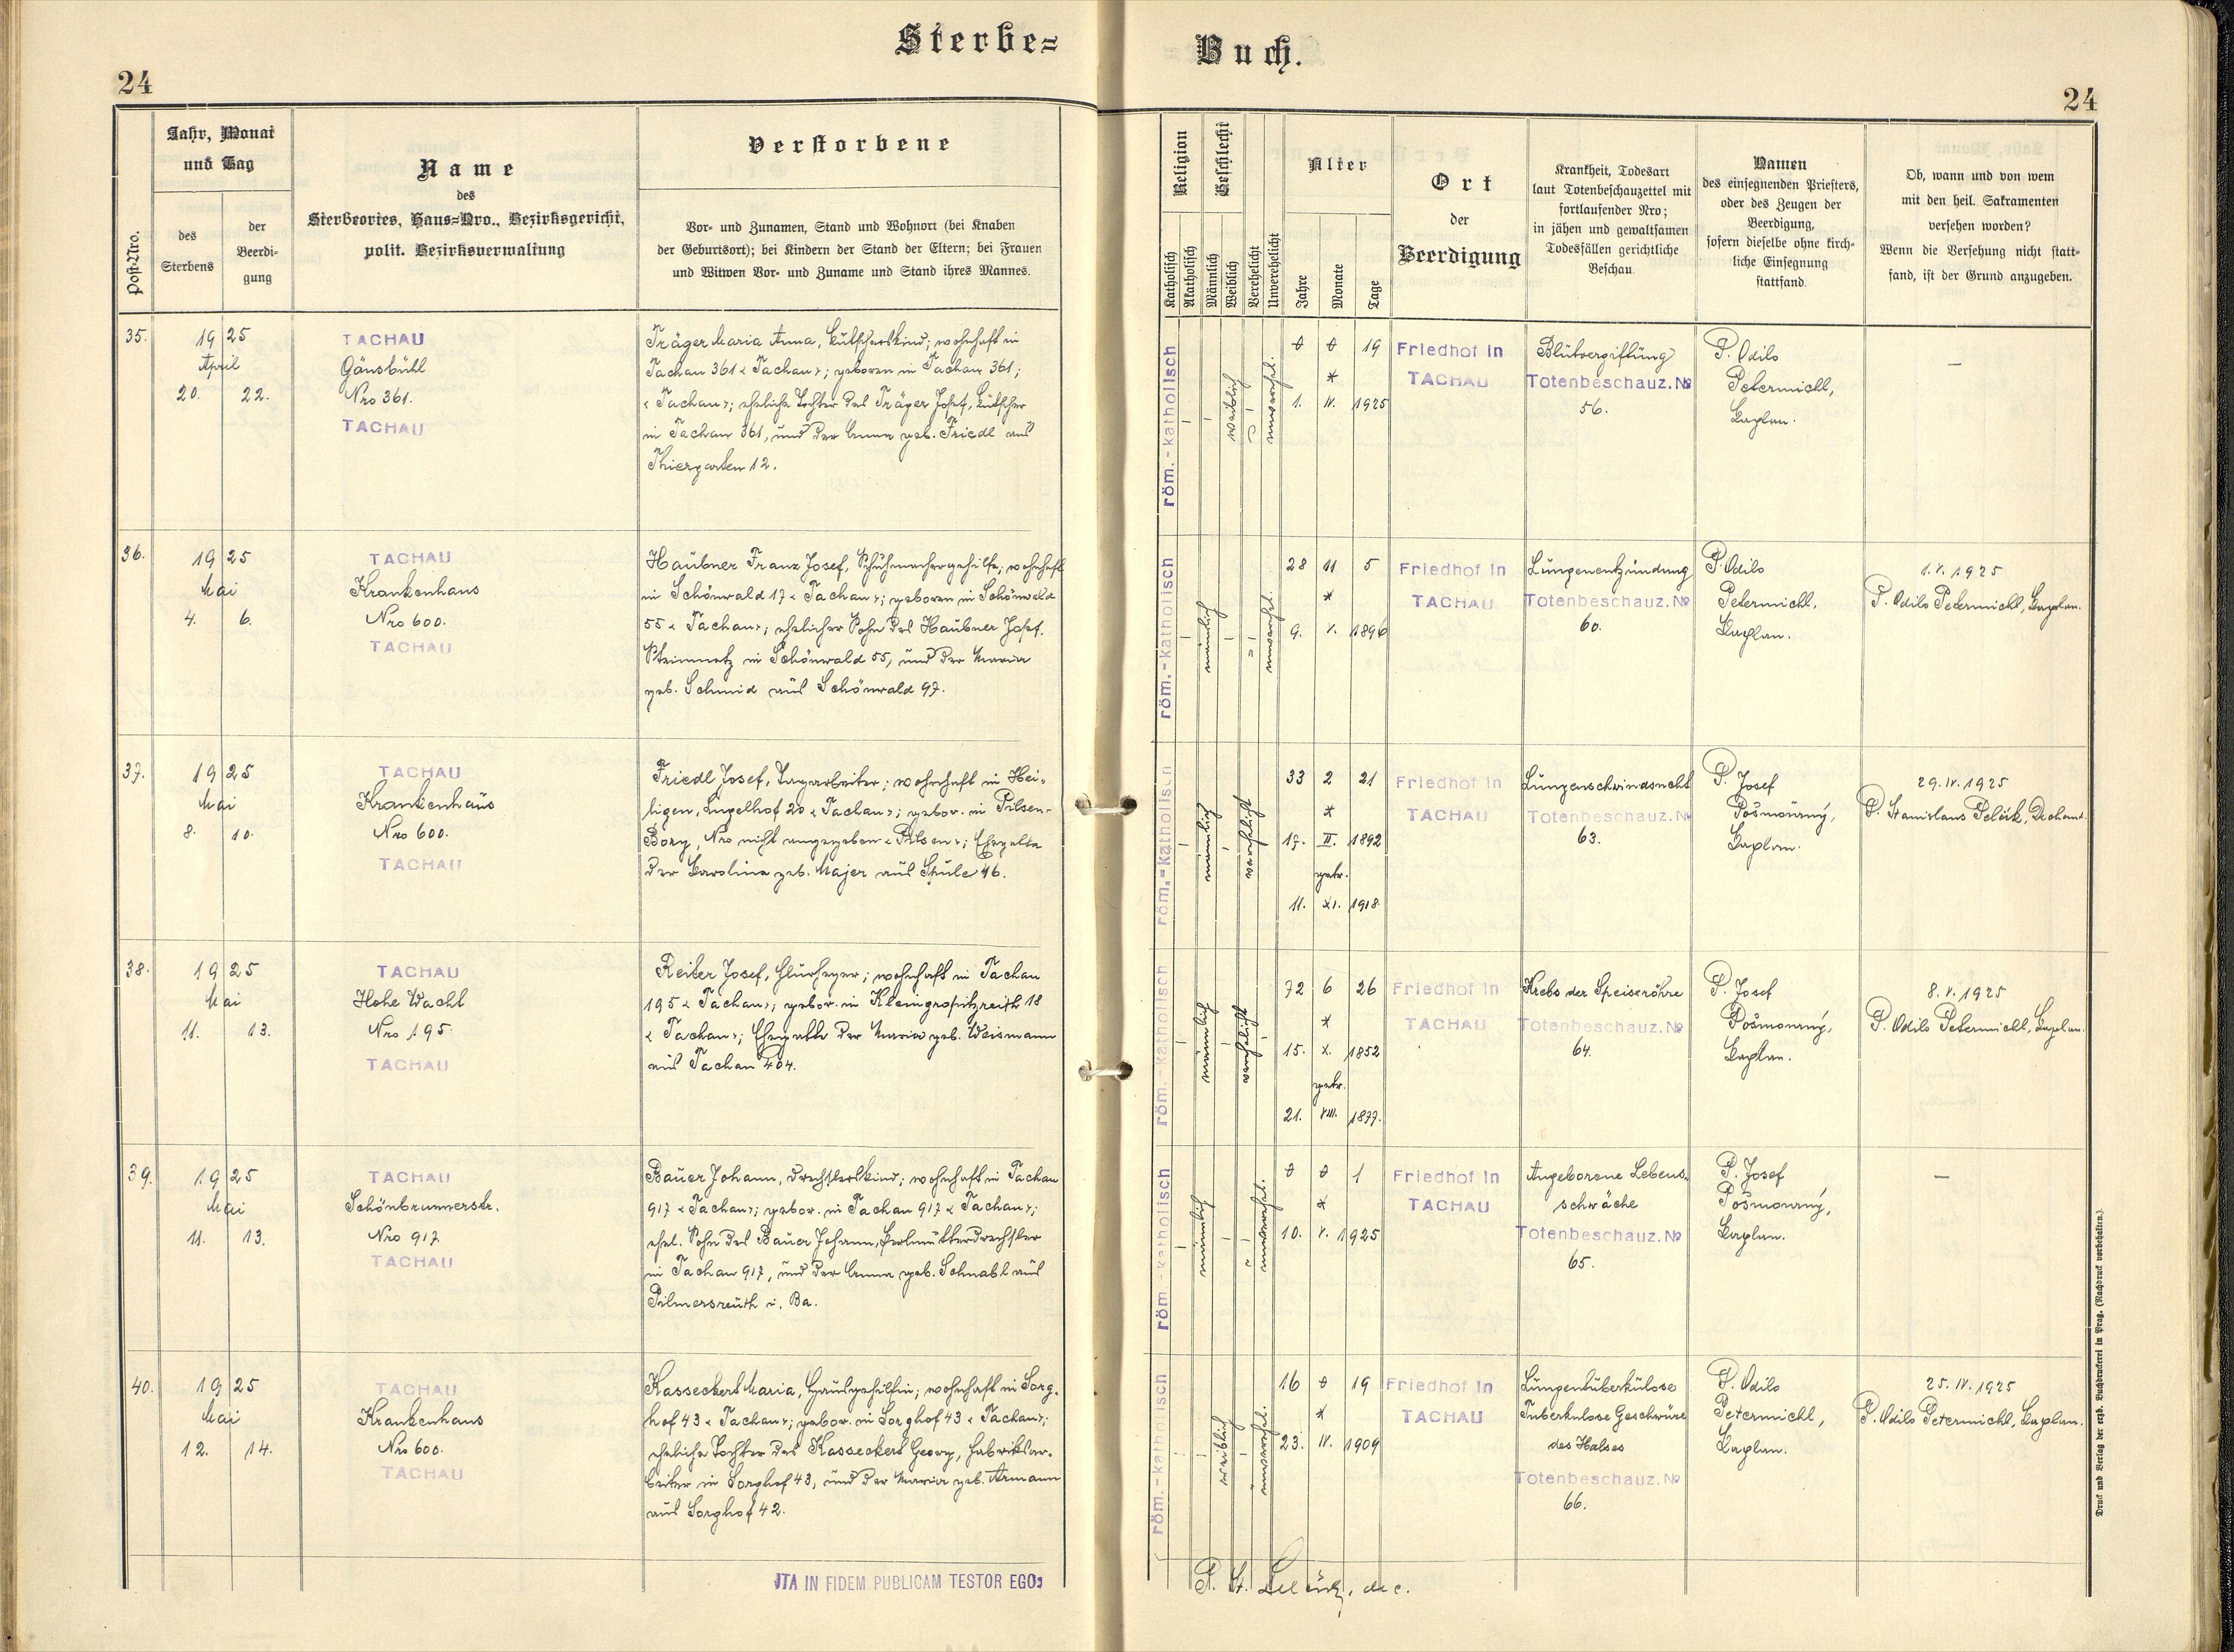 Sterbe=
Buch.
24
24
Post-Nro.
Jahr, Monat
und Tag
des
Sterbens
der
Beerdi-
gung
Name
des
Sterbeortes, Haus=Nro., Bezirksgericht,
polit. Bezirksverwaltung
Verstorbene
Vor- und Zunamen, Stand und Wohnort (bei Knaben
der Geburtsort); bei Kindern der Stand der Eltern; bei Frauen
und Witwen Vor- und Zuname und Stand ihres Mannes.
Religion
Katholisch
Akatholisch
Geschlecht
Männlich
Weiblich
Verehelicht
Unverehelicht
Alter
Jahre
Monate
Tage
Ort
der
Beerdigung
Krankheit, Todesart
laut Totenbeschauzettel mit
fortlaufender Nro;
in jähen und gewaltsamen
Todesfällen gerichtliche
Beschau.
Namen
des einsegnenden Priesters,
oder des Zeugen der
Beerdigung,
sofern dieselbe ohne kirch-
liche Einsegnung
stattfand.
Ob, wann und von wem
mit den heil. Sakramenten
versehen worden?
Wenn die Versehung nicht statt-
fand, ist der Grund anzugeben.
35.
1925
April
20. 22.
TACHAU
Gänsbühl
Nro 361.
TACHAU
Träger Maria Anna, Kutscherskind; wohnhaft in
Tachau 361 < Tachau >; geboren in Tachau 361;
< Tachau >; eheliche Tochter des Träger Josef, Kutscher
in Tachau 361, und der Anna geb. Friedl aus
Thiergarten 12.
röm.-katholisch
weiblich
unverehel.
0 0 19
*
1. IV. 1925
Friedhof in
TACHAU
Blutvergiftung
Totenbeschauz. No
56.
P. Odilo
Petermichl,
Kaplan.
—
36.
1925
Mai
4. 6.
TACHAU
Krankenhaus
Nro 600.
TACHAU
Haubner Franz Josef, Schuhmachergehilfe; wohnhaft
in Schönwald 17 < Tachau >; geboren in Schönwald
55 < Tachau >; ehelicher Sohn des Haubner Josef,
Steinmetz in Schönwald 55, und der Maria
geb. Schmid aus Schönwald 97.
röm.-katholisch
männlich
unverehel.
28 11 5
*
9. V. 1896
Friedhof in
TACHAU
Lungenentzündung
Totenbeschauz. No
60.
P. Odilo
Petermichl,
Kaplan.
1. V. 1925
P. Odilo Petermichl, Kaplan.
37.
1925
Mai
8. 10.
TACHAU
Krankenhaus
Nro 600.
TACHAU
Friedl Josef, Tagarbeiter; wohnhaft in Hei-
ligen, Lugelhof 20 < Tachau >; gebor. in Pilsen-
Bory, Nro nicht angegeben < Pilsen >; Ehegatte
der Karolina geb. Majer aus 46.
röm.-katholisch
männlich
verehelicht
33 2 21
*
17. II. 1892
getr.
11. XI. 1918.
Friedhof in
TACHAU
Lungenschwindsucht
Totenbeschauz. No
63.
P. Josef
Pošmourný,
Kaplan.
29. IV. 1925
P. Stanislaus, Dechant.
38.
1925
Mai
11. 13.
TACHAU
Hohe Wacht
Nro 195.
TACHAU
Reiter Josef, Flurheger; wohnhaft in Tachau
195 < Tachau >; gebor. in Kleingropitzreith 18
< Tachau >; Ehegatte der Maria geb. Weismann
aus Tachau 404.
röm.-katholisch
männlich
verehelicht
72 6 26
*
15. X. 1852
getr.
21. VIII. 1877.
Friedhof in
TACHAU
Krebs der Speiseröhre
Totenbeschauz. No
64.
P. Josef
Pošmourný,
Kaplan.
8. V. 1925
P. Odilo Petermichl, Kaplan.
39.
1925
Mai
11. 13.
TACHAU
Schönbrunnerstr.
Nro 917
TACHAU
Bauer Johann, Drechslerskind; wohnhaft in Tachau
917 < Tachau >; gebor. in Tachau 917 < Tachau >;
ehel. Sohn des Bauer Johann, Perlmutterdrechsler
in Tachau 917, und der Anna geb. Schnabl aus
Pilmersreuth i. Ba.
röm.-katholisch
männlich
unverehel.
0 0 1
*
10. V. 1925
Friedhof in
TACHAU
Angeborene Lebens-
schwäche
Totenbeschauz. No
65.
P. Josef
Pošmourný,
Kaplan.
—
40.
1925
Mai
12. 14.
TACHAU
Krankenhaus
Nro 600.
TACHAU
Kasseckert Maria, Hausgehilfin; wohnhaft in Sorg-
hof 43 < Tachau >; gebor. in Sorghof 43 < Tachau >;
eheliche Tochter des Kasseckert Georg, Fabriksar-
beiter in Sorghof 43, und der Maria geb. Armann
aus Sorghof 42.
röm.-katholisch
weiblich
unverehel.
16 0 19
*
23. IV. 1909
Friedhof in
TACHAU
Lungentuberkulose
Tuberkulose Geschwüre
des Halses
Totenbeschauz. No
66.
P. Odilo
Petermichl,
Kaplan.
25. IV. 1925
P. Odilo Petermichl, Kaplan.
ITA IN FIDEM PUBLICAM TESTOR EGO:
P. St. dec.
Druck und Verlag der erzb. Buchdruckerei in Prag. (Nachdruck vorbehalten.)